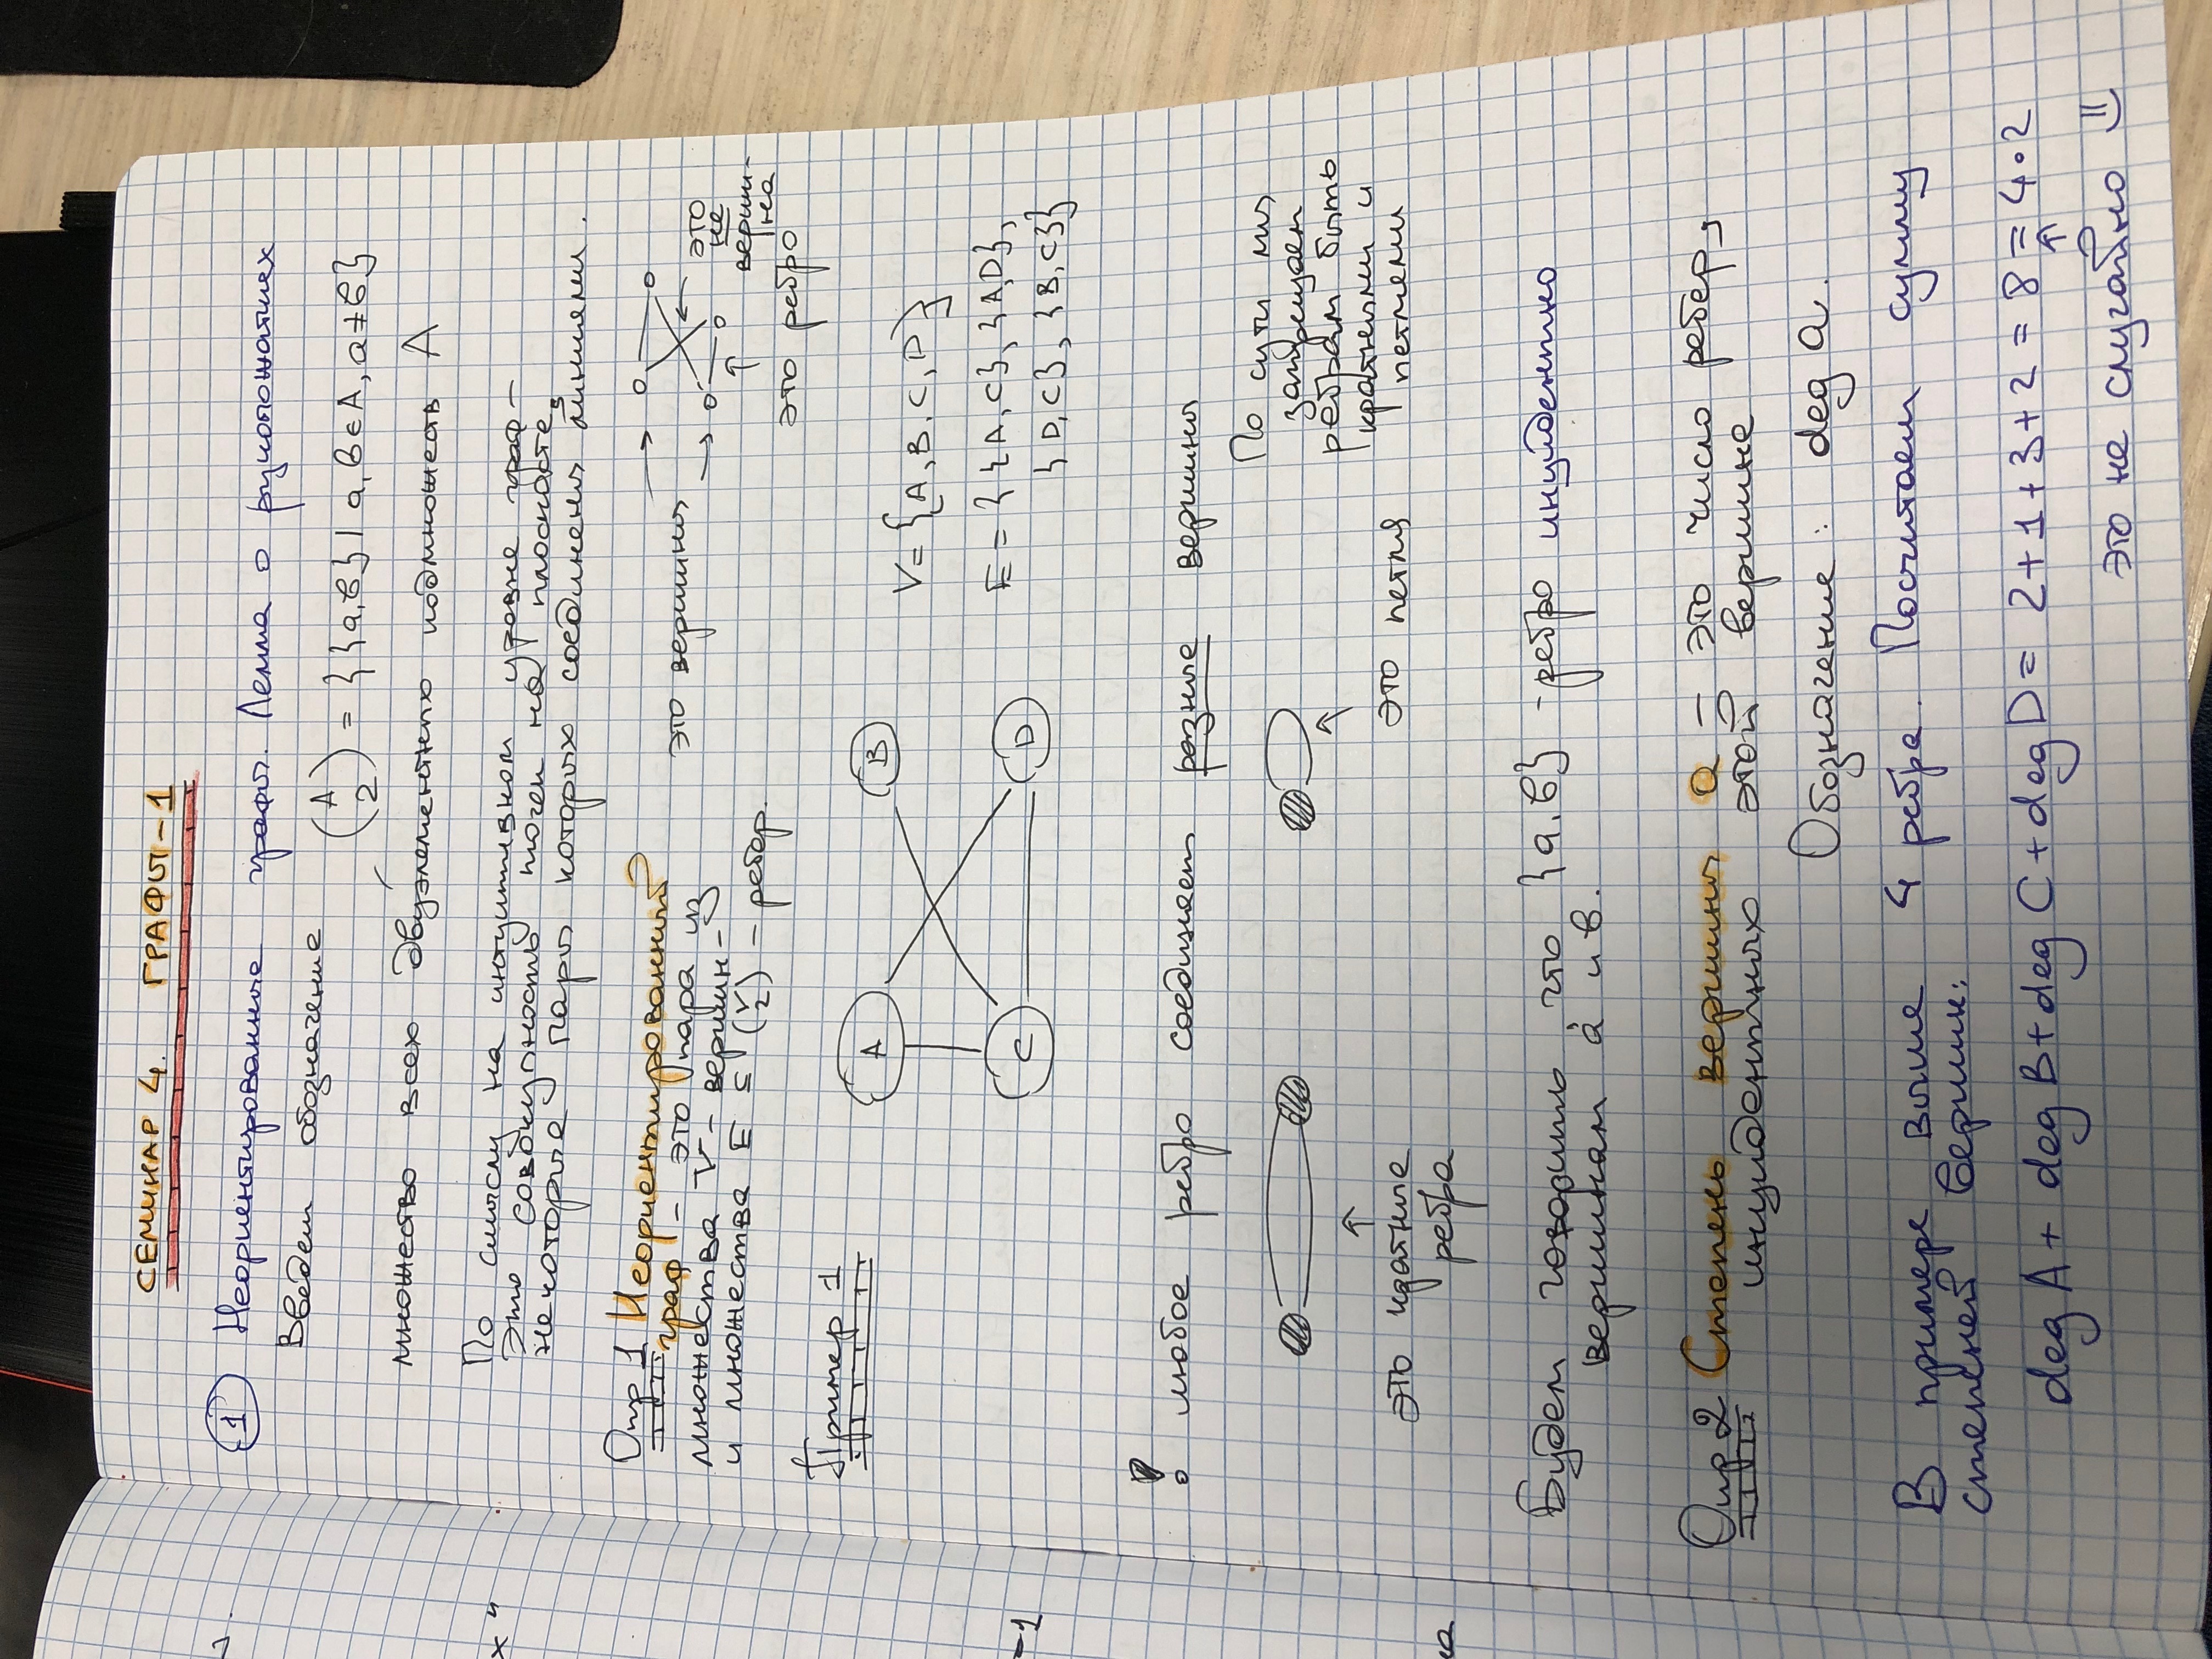 СЕМИНАР 4. ГРАФЫ-1
1 Неориентированные графы. Лемма о рукопожатиях
Введем обозначение
(A 2) = {{a,b} | a, b ∈ A, a ≠ b}
множество всех двуэлементных подмножеств A
По смыслу на интуитивном уровне граф –
это совокупность точек на плоскости,
некоторые пары которых соединены линиями.
Опр 1 Неориентированный
граф – это пара из
множества V – вершин –
и множества E ⊆ (V 2) – ребер.
это вершины
это
не
верши-
на
это ребро
Пример 1
A
B
C
D
V = {A, B, C, D}
E = {{A, C}, {A,D},
{D, C}, {B, C}}
! любое ребро соединяет разные вершины
это кратные
ребра
это петля
По сути мы
запрещаем
ребрам быть
кратными и
петлями
Будем говорить, что {a, b} - ребро инцидентно
вершинам a и b.
Опр 2 Степень вершины a – это число ребер,
инцидентных этой вершине
Обозначение: deg a.
В примере выше 4 ребра. Посчитаем сумму
степеней вершин:
deg A + deg B + deg C + deg D = 2+1+3+2 = 8 = 4·2
это не случайно =)